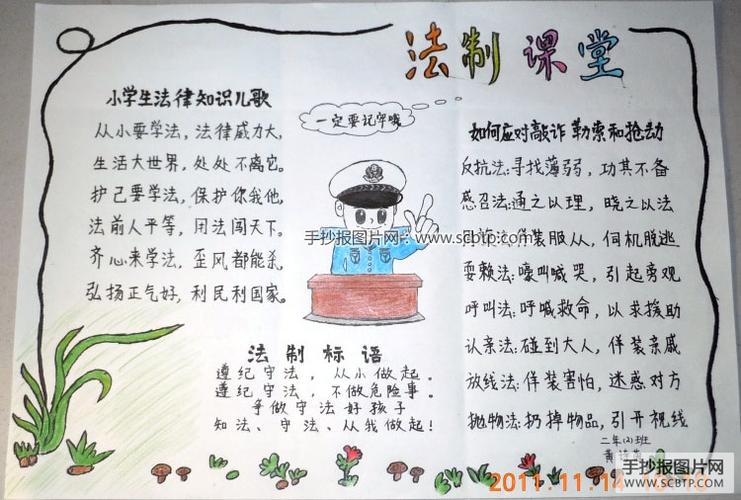 法制课堂
小学生法律知识儿歌
从小要学法，法律威力大，
生活大世界，处处不离它。
护己要学法，保护你我他，
法前人平等，用法闯天下。
齐心来学法，歪风都能杀，
弘扬正气好，利民利国家。
一定要记牢哦
手抄报图片网：www.scbtp.com
法制标语
遵纪守法，从小做起。
遵纪守法，不做危险事。
争做守法好孩子
知法、守法、从我做起！
如何应对敲诈勒索和抢劫
反抗法：寻找薄弱，功其不备
感召法：通之以理，晓之以法
佯装服从，伺机脱逃
耍赖法：嚎叫喊哭，引起旁观
呼叫法：呼喊救命，以求援助
认亲法：碰到大人，佯装亲戚
放线法：佯装害怕，迷惑对方
抛物法：扔掉物品，引开视线
二年(2)班
黄
2011.11.14
手抄报图片网
SCBTP.COM